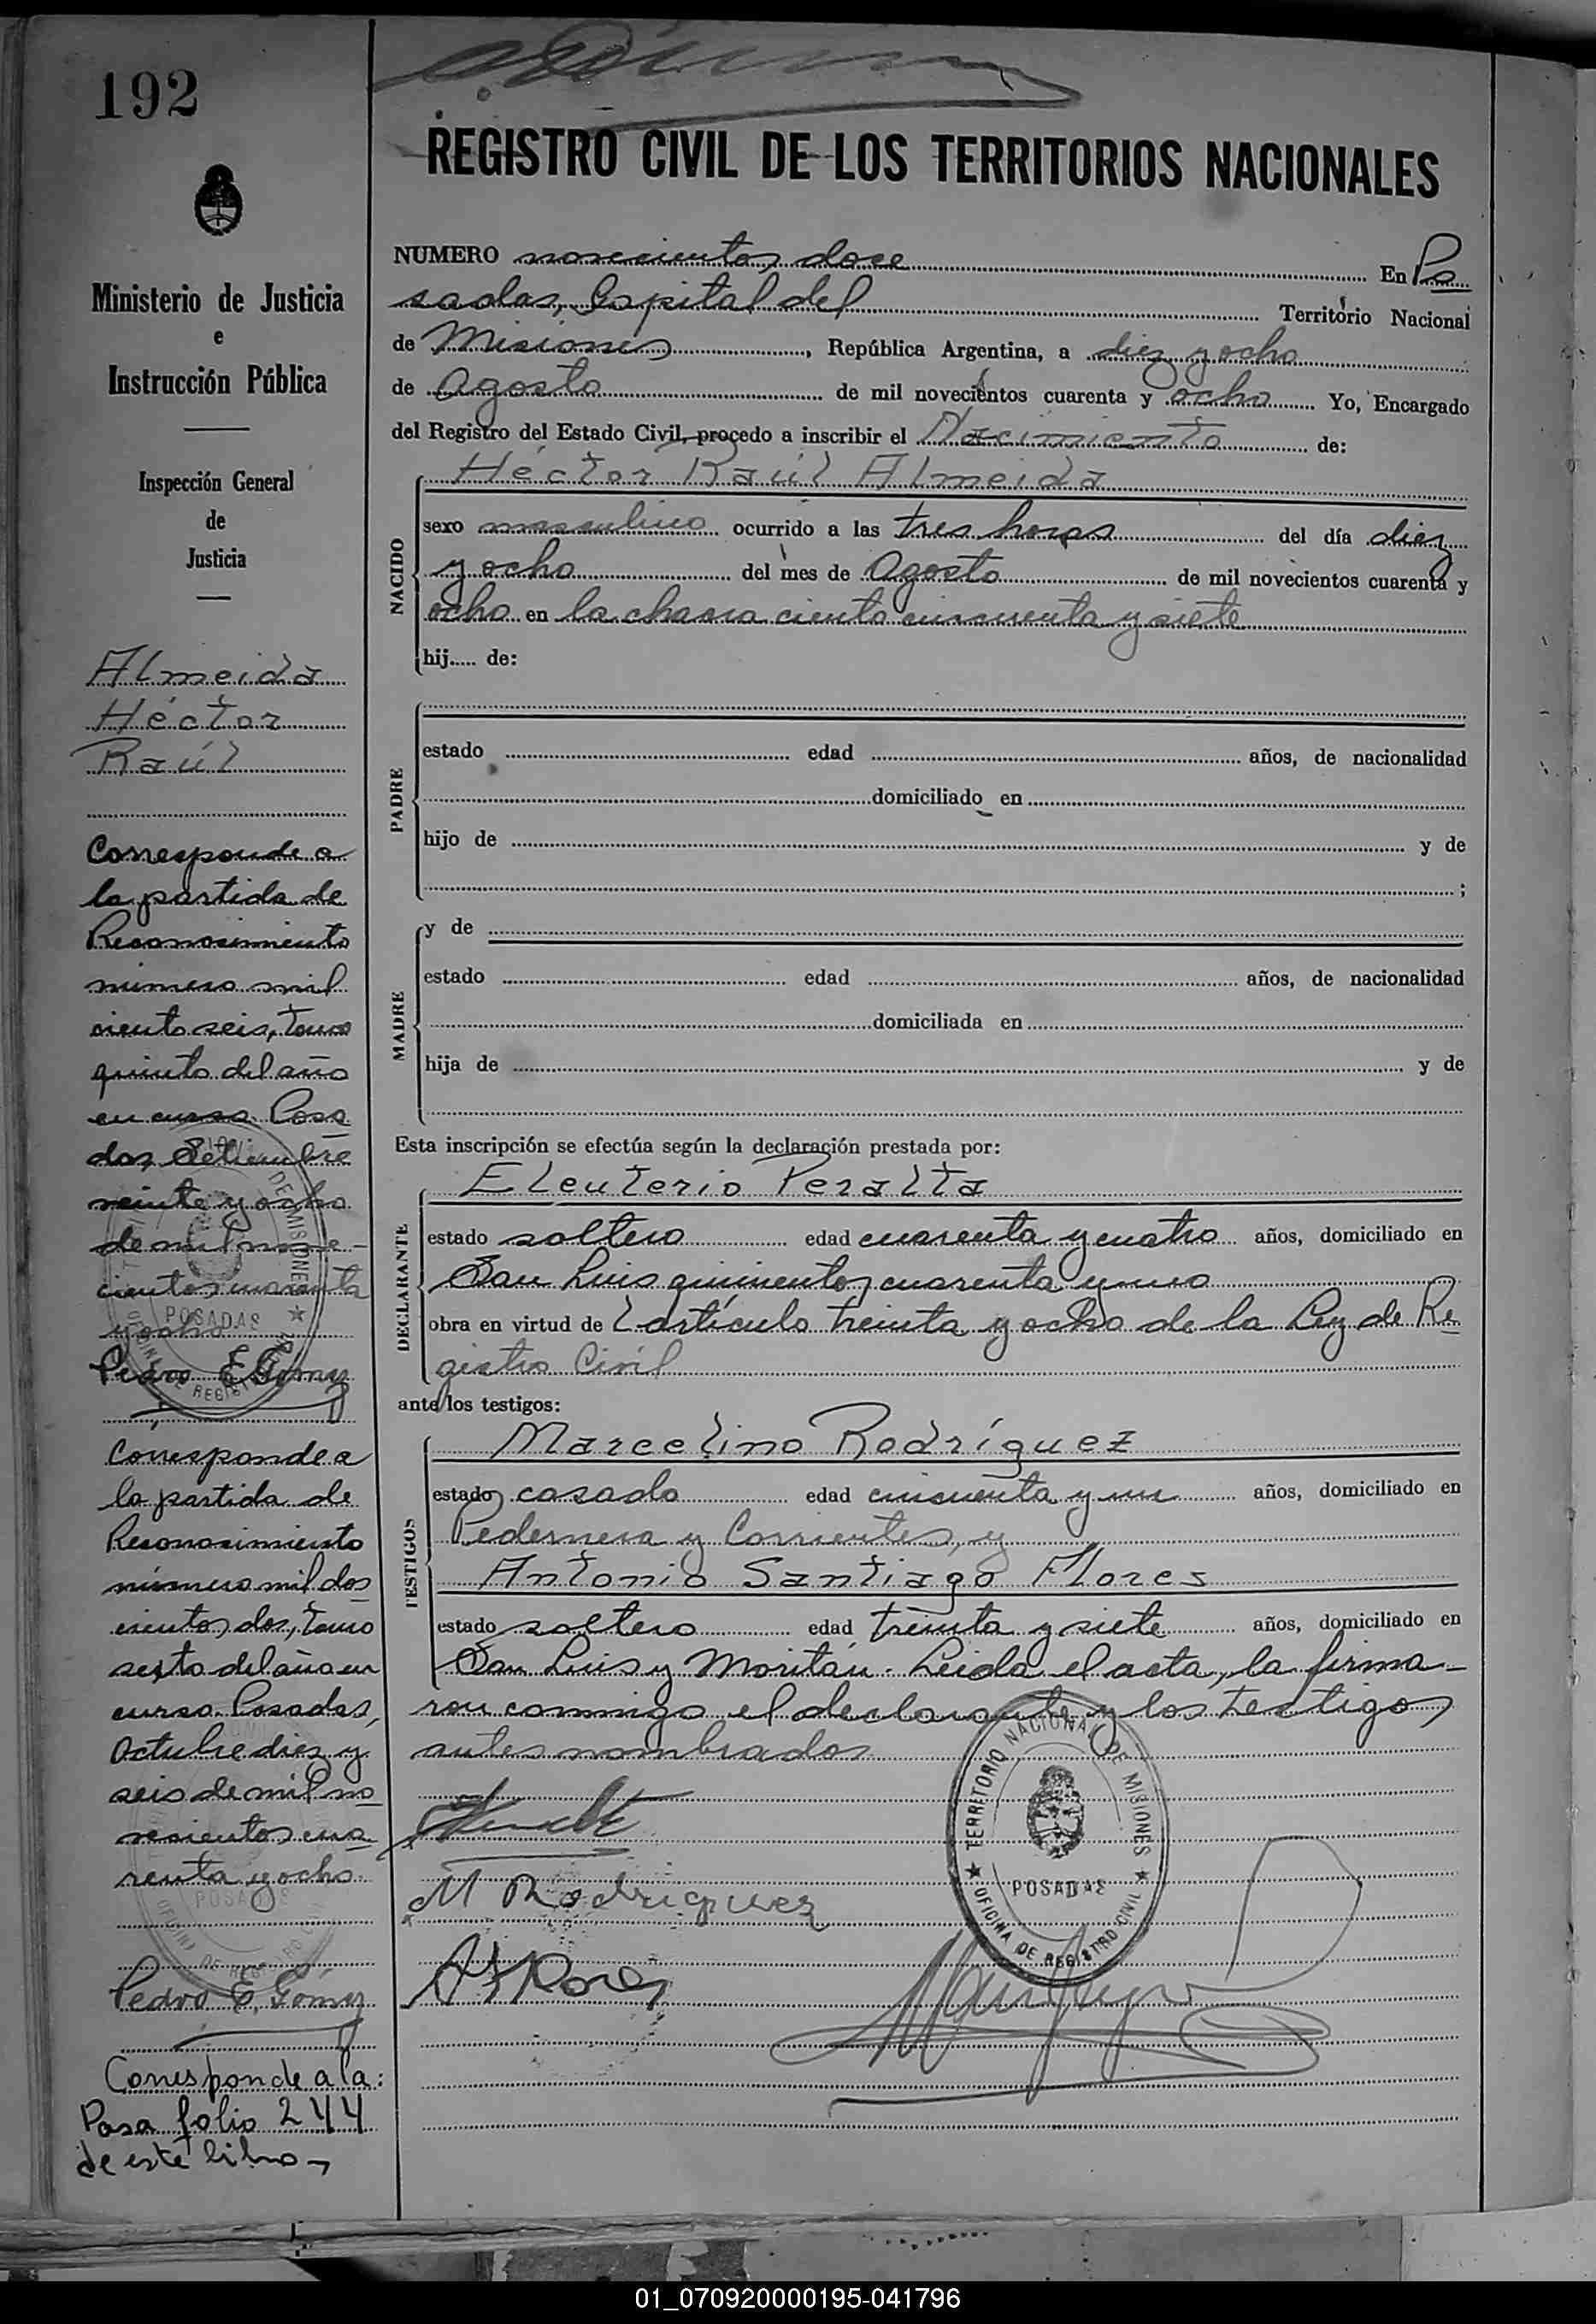 192
Ministerio de Justicia
e
Instrucción Pública
Inspección General
de
Justicia
Almeida
Héctor
Raúl
Corresponde a
la partida de
Reconocimiento
número mil
ciento seis, tomo
quinto del año
en curso. Posa
das, Setiembre
veinte y ocho
de mil nove-
cientos cuarenta
y ocho
Pedro E. Gómez
Corresponde a
la partida de
Reconocimiento
número mil dos
cientos dos, tomo
sexto del año en
curso. Posadas,
Octubre diez y
seis de mil no
vecientos cua
renta y ocho.
Pedro E. Gómez
Corresponde a la:
Pasa folio 244
de este libro
REGISTRO CIVIL DE LOS TERRITORIOS NACIONALES
NUMERO novecientos doce En Po
sadas, Capital del Territorio Nacional
de Misiones, República Argentina, a diez y ocho
de Agosto de mil novecientos cuarenta y ocho Yo, Encargado
del Registro del Estado Civil, procedo a inscribir el Nacimiento de:
Héctor Raúl Almeida
NACIDO
sexo masculino ocurrido a las tres horas del día diez
y ocho del mes de Agosto de mil novecientos cuarenta y
ocho en la chacra ciento cincuenta y siete
hij..... de:
PADRE
estado edad años, de nacionalidad
domiciliado en
hijo de y de
;
MADRE
y de
estado edad años, de nacionalidad
domiciliada en
hija de y de
Esta inscripción se efectúa según la declaración prestada por:
Eleuterio Peralta
DECLARANTE
estado soltero edad cuarenta y cuatro años, domiciliado en
San Luis quinientos cuarenta y uno
obra en virtud de l artículo treinta y ocho de la Ley de Re
gistro Civil
ante los testigos:
Marcelino Rodríguez
TESTIGOS
estado casado edad cincuenta y un años, domiciliado en
Pedernera y Corrientes, y
Antonio Santiago Flores
estado soltero edad treinta y siete años, domiciliado en
San Luis y Moritán. Leida el acta, la firma-
ron conmigo el declarante y los testigos
antes nombrados
M Rodriguez
TERRITORIO NACIONAL DE MISIONES
POSADAS
OFICINA DE REGISTRO CIVIL
01_070920000195-041796